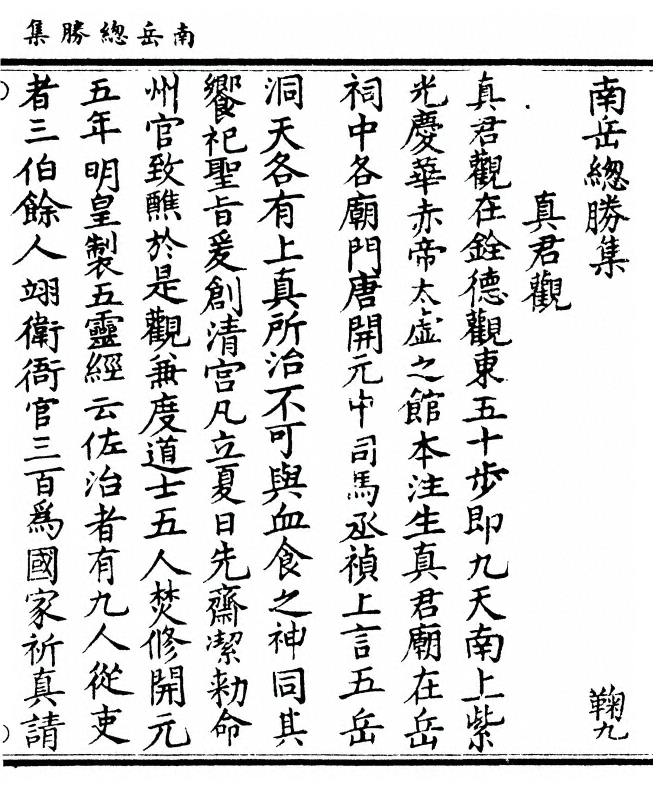 南岳總勝集
南岳總勝集
鞠九
真君觀
真君觀在銓德觀東五十步即九天南上紫
光慶華赤帝太虛之館本注生真君廟在岳
祠中各廟門唐開元中司馬丞禎上言五岳
洞天各有上真所治不可與血食之神同其
饗祀聖旨爰創清宮凡立夏日先齋潔勑命
州官致醮於是觀兼度道士五人焚修開元
五年明皇製五靈經云佐治者有九人從吏
者三伯餘人翊衛衙官三百爲國家祈真請